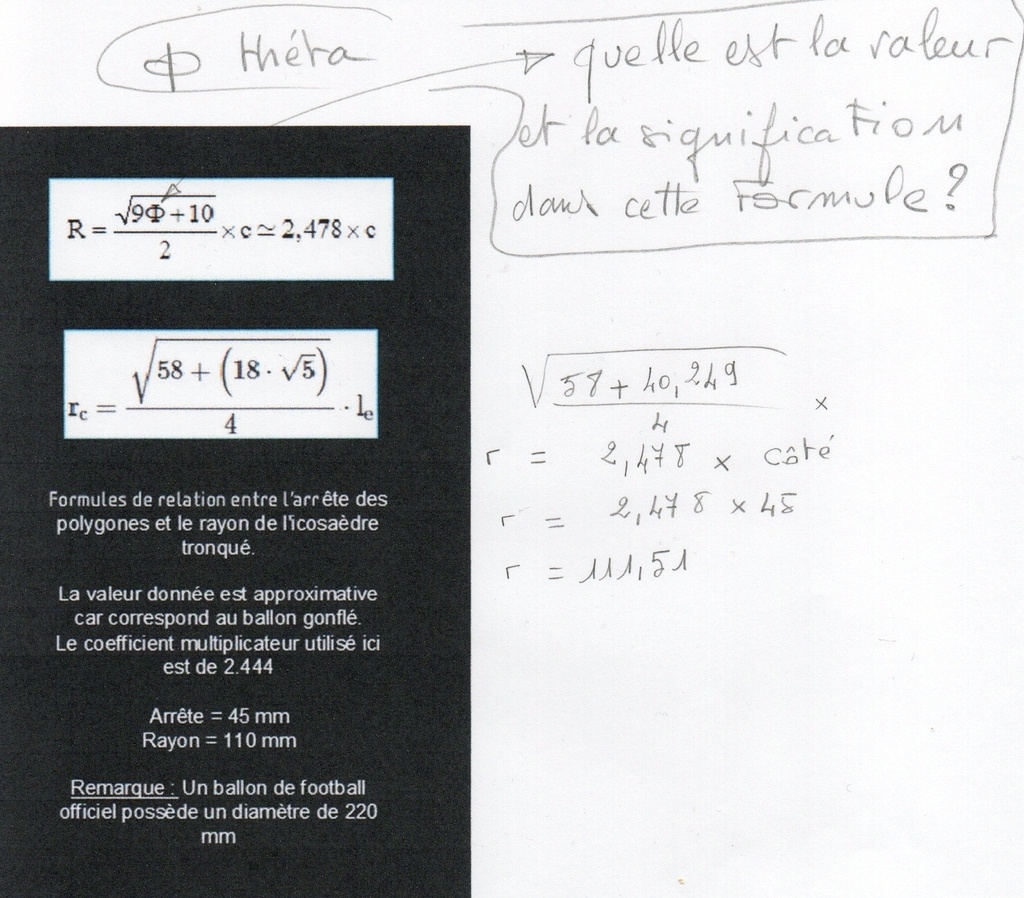 Φ théta
quelle est la valeur
et la signification
dans cette Formule?
R = √(9Φ+10)/2 × c ≃ 2,478 × c
r_c = √(58 + (18 · √5))/4 · l_e
Formules de relation entre l'arrête des
polygones et le rayon de l'icosaèdre
tronqué.
La valeur donnée est approximative
car correspond au ballon gonflé.
Le coefficient multiplicateur utilisé ici
est de 2.444
Arrête = 45 mm
Rayon = 110 mm
Remarque : Un ballon de football
officiel possède un diamètre de 220
mm
√(58 + 40,249)/4 ×
r = 2,478 × côté
r = 2,478 × 45
r = 111,51